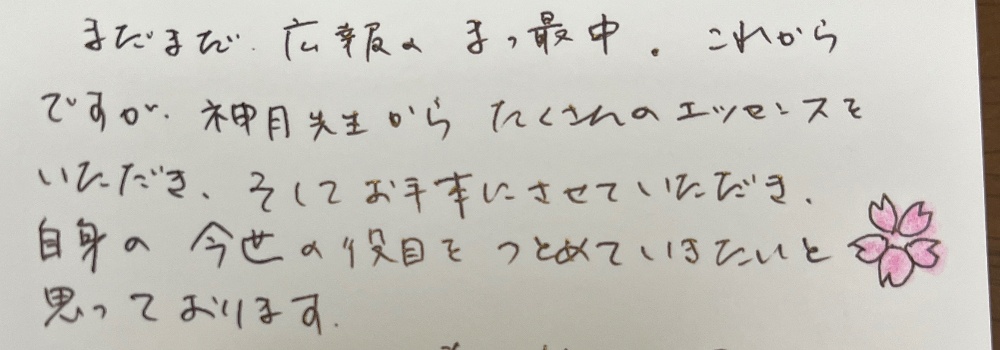 まだまだ、広報のまっ最中。これから
ですが、神月先生からたくさんのエッセンスを
いただき、そしてお手本にさせていただき、
自身の今世の役目をつとめていきたいと
思っております。